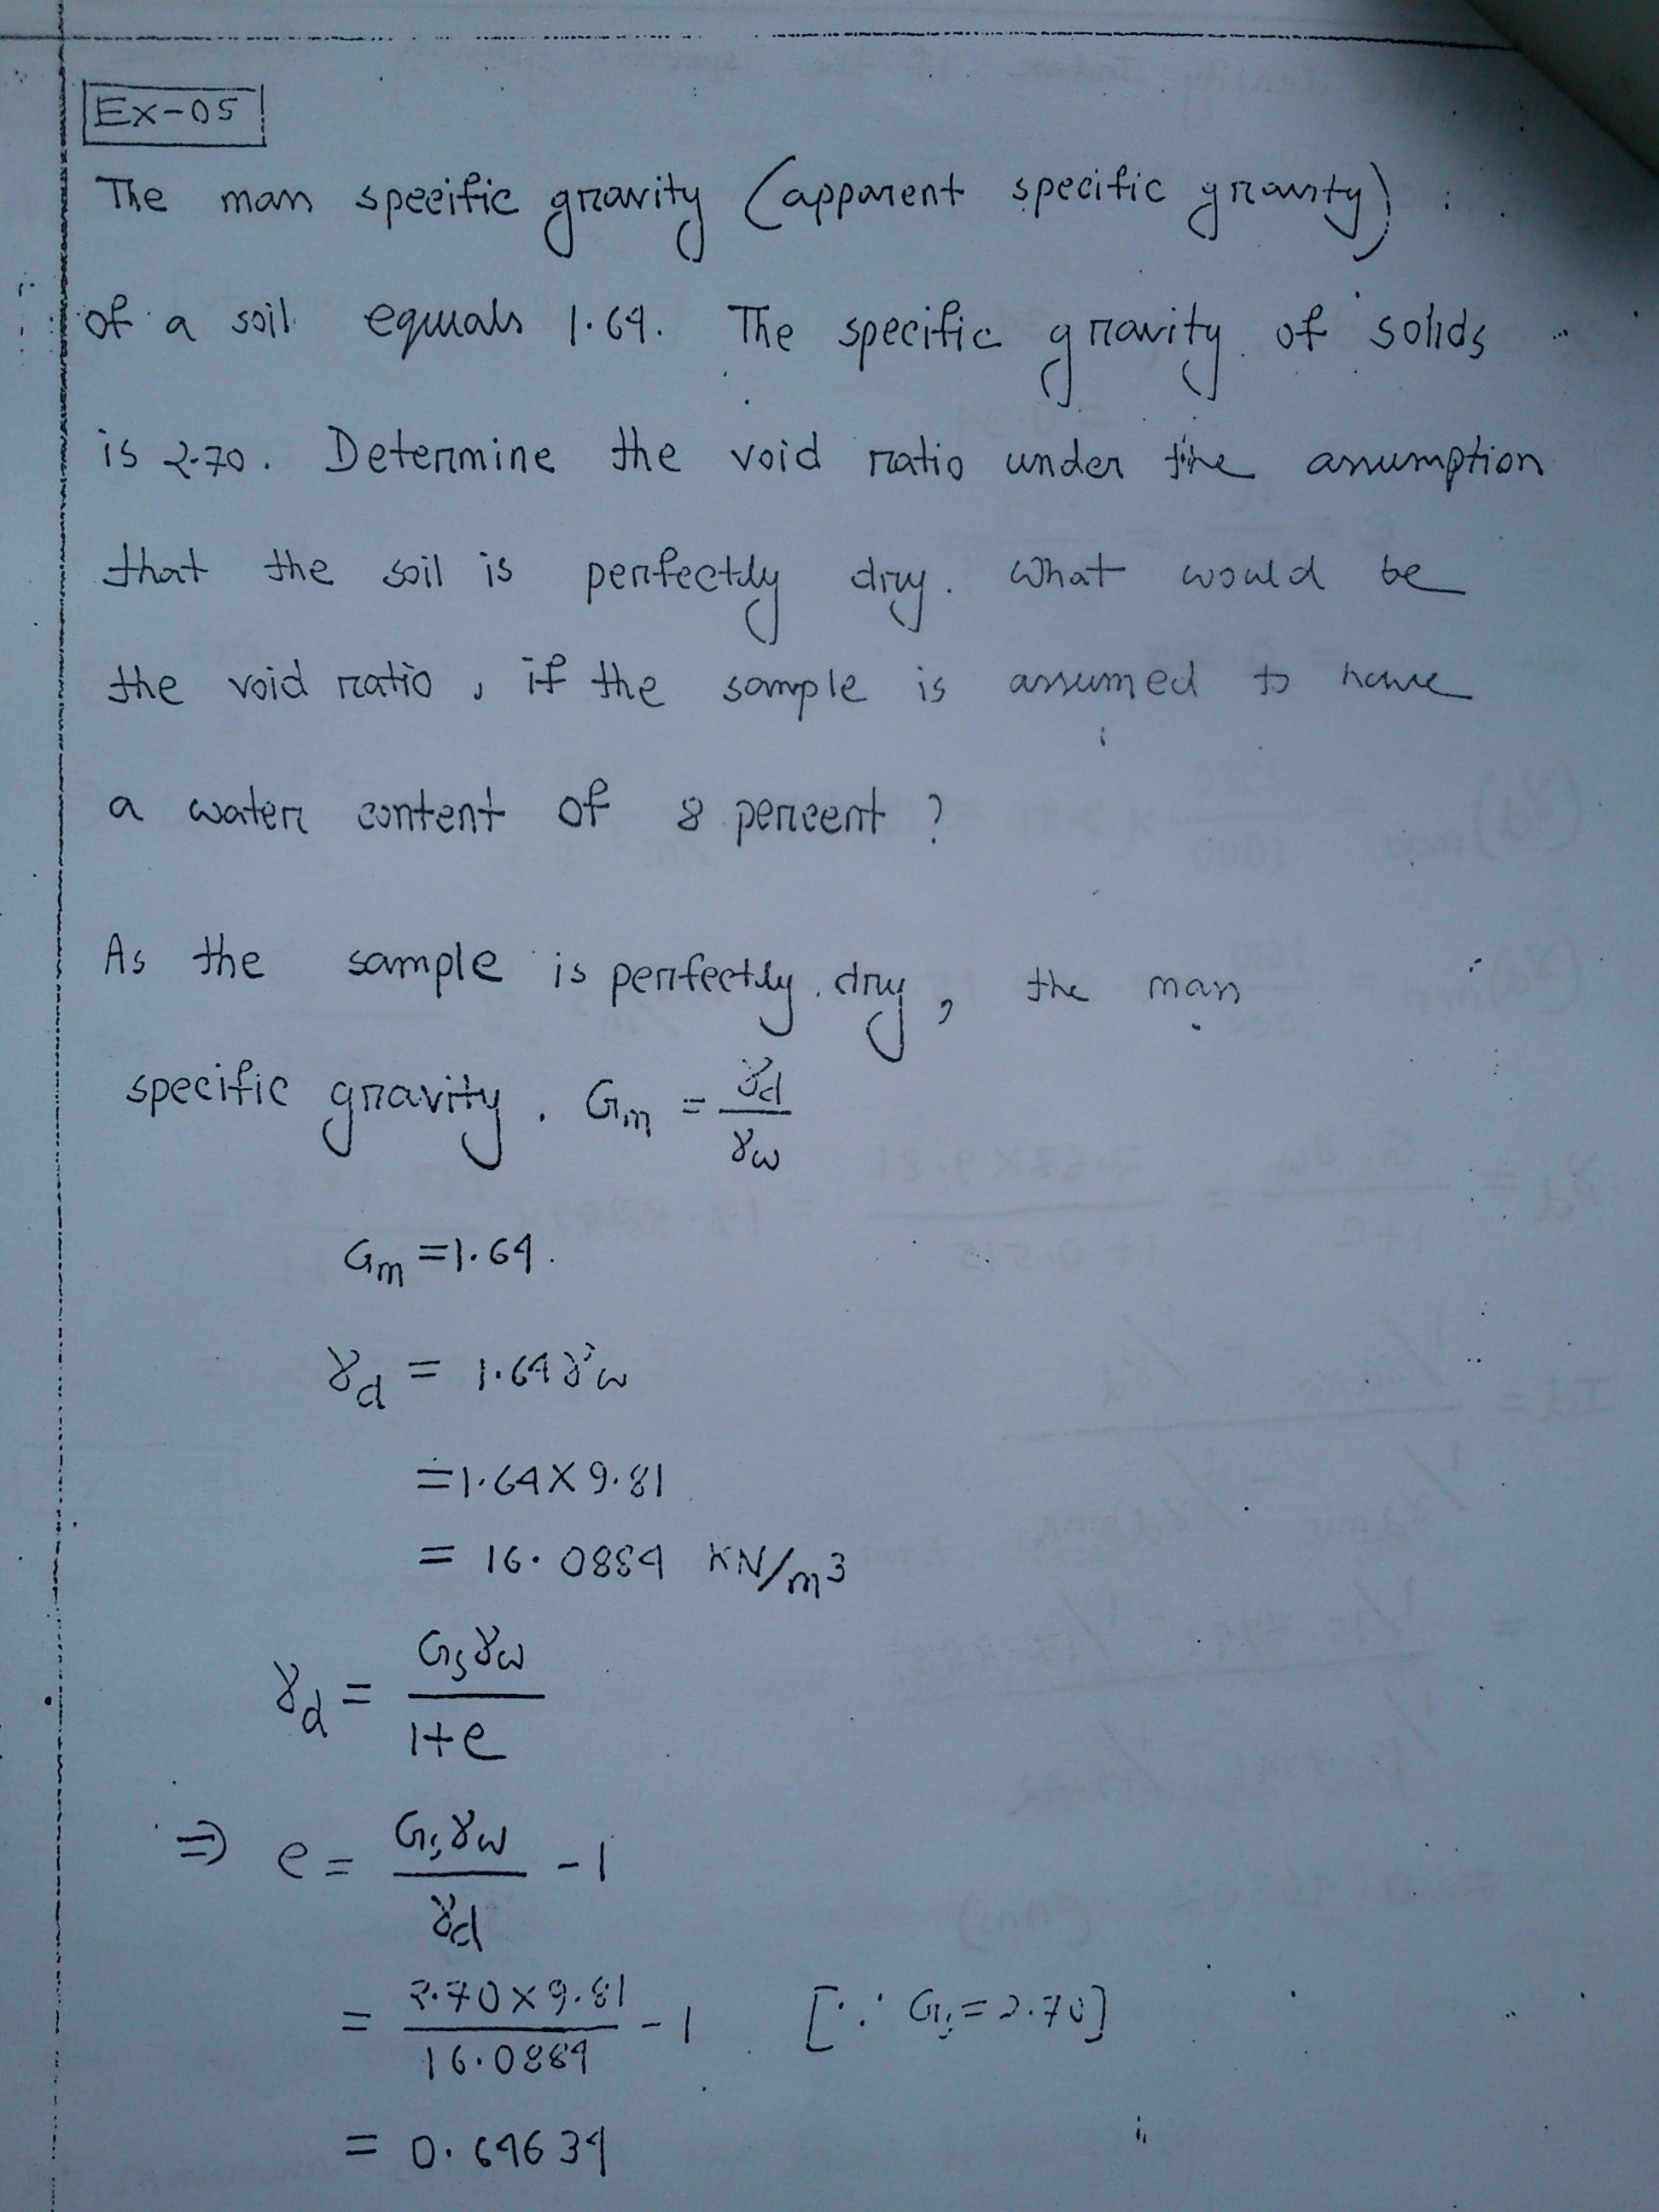 Ex-05
The mass specific gravity (apparent specific gravity)
of a soil equals 1.64. The specific gravity of solids
is 2.70. Determine the void ratio under the assumption
that the soil is perfectly dry. What would be
the void ratio, if the sample is assumed to have
a water content of 8 percent?
As the sample is perfectly dry, the mass
specific gravity. Gm = γd/γw
Gm = 1.64.
γd = 1.64 γw
= 1.64 × 9.81
= 16.0884 KN/m³
γd = Gsγw/1+e
⇒ e = Gsγw/γd - 1
= 2.70×9.81/16.0884 - 1 [∵ Gs = 2.70]
= 0.64634